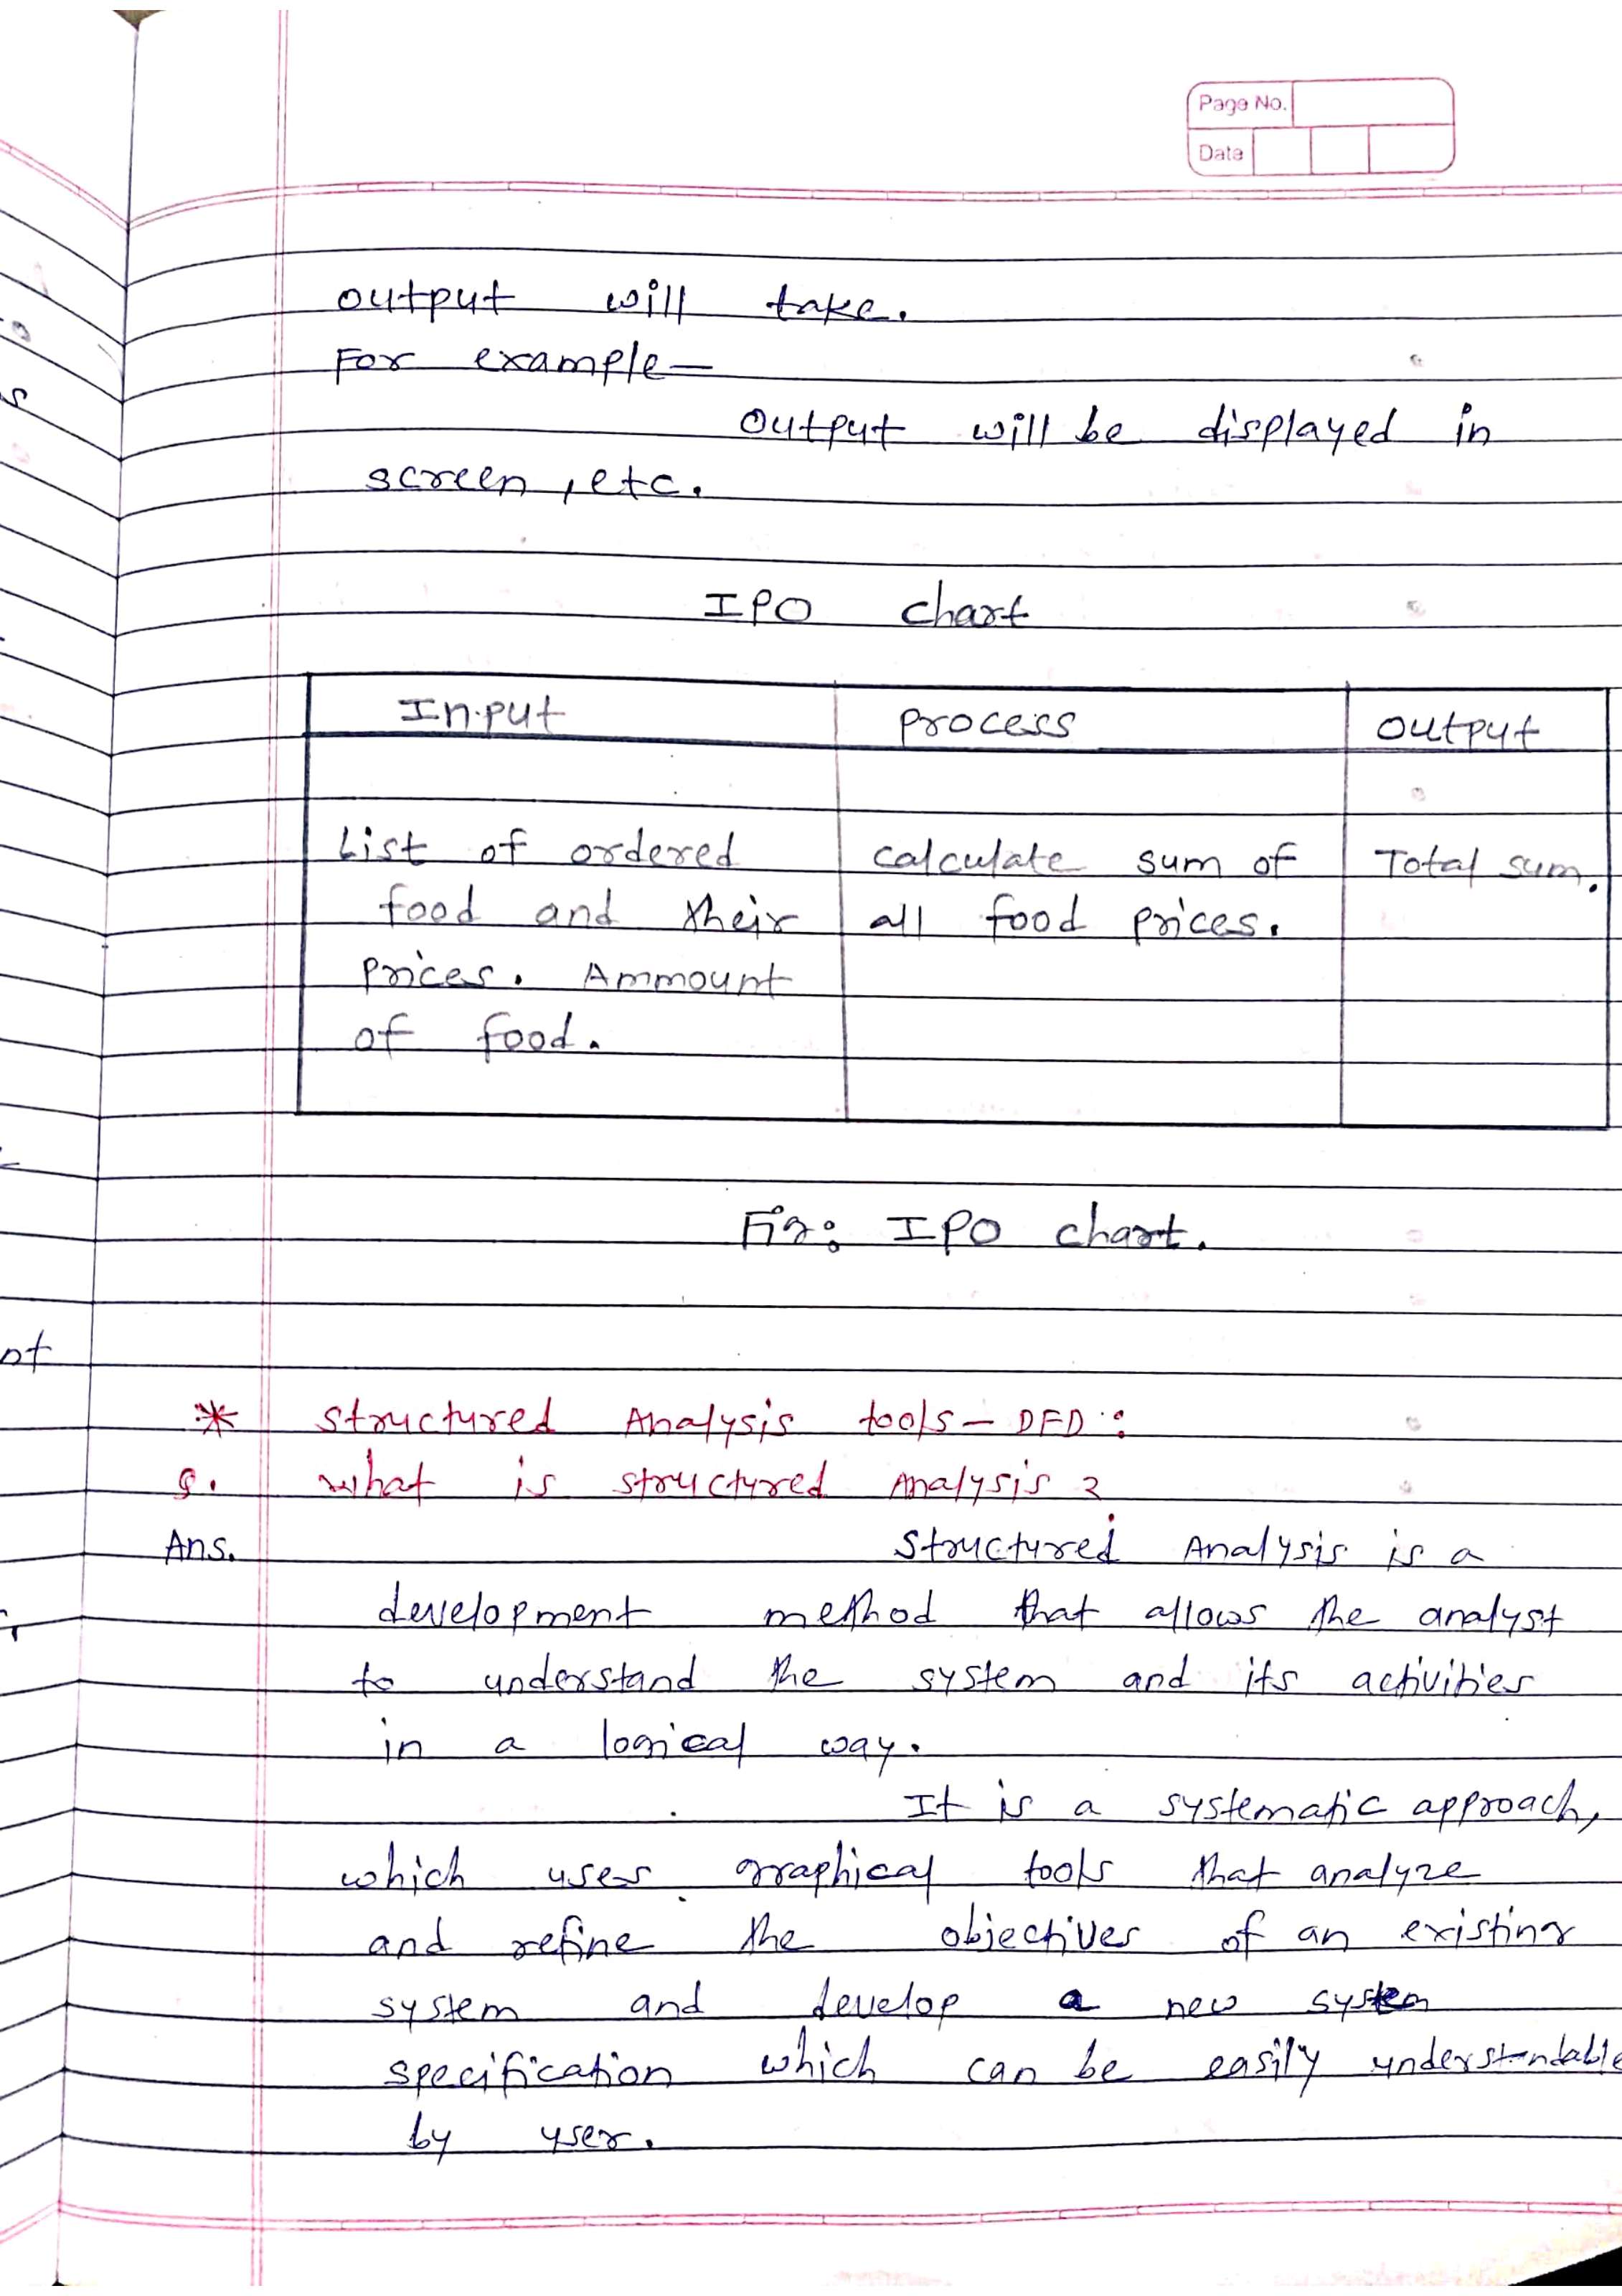 Page No.
Date
output will take.
For example—
Output will be displayed in
screen, etc.
IPO chart
Input process output
List of ordered calculate sum of Total sum.
food and their all food prices.
prices. Ammount
of food.
Fig: IPO chart.
of
* Structured Analysis tools – DFD :
Q. What is structured Analysis ?
Ans. Structured Analysis is a
development method that allows the analyst
to understand the system and its activities
in a logical way.
It is a systematic approach,
which uses graphical tools that analyze
and refine the objectives of an existing
system and develop a new system
specification which can be easily understandable
by user.